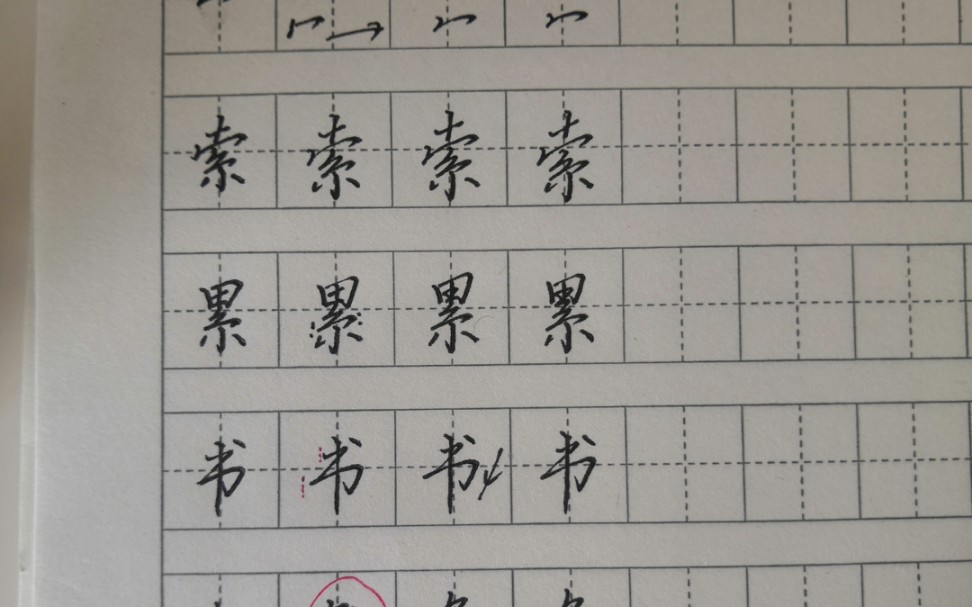 索 索 索 索
累 累 累 累
书 书 书 书